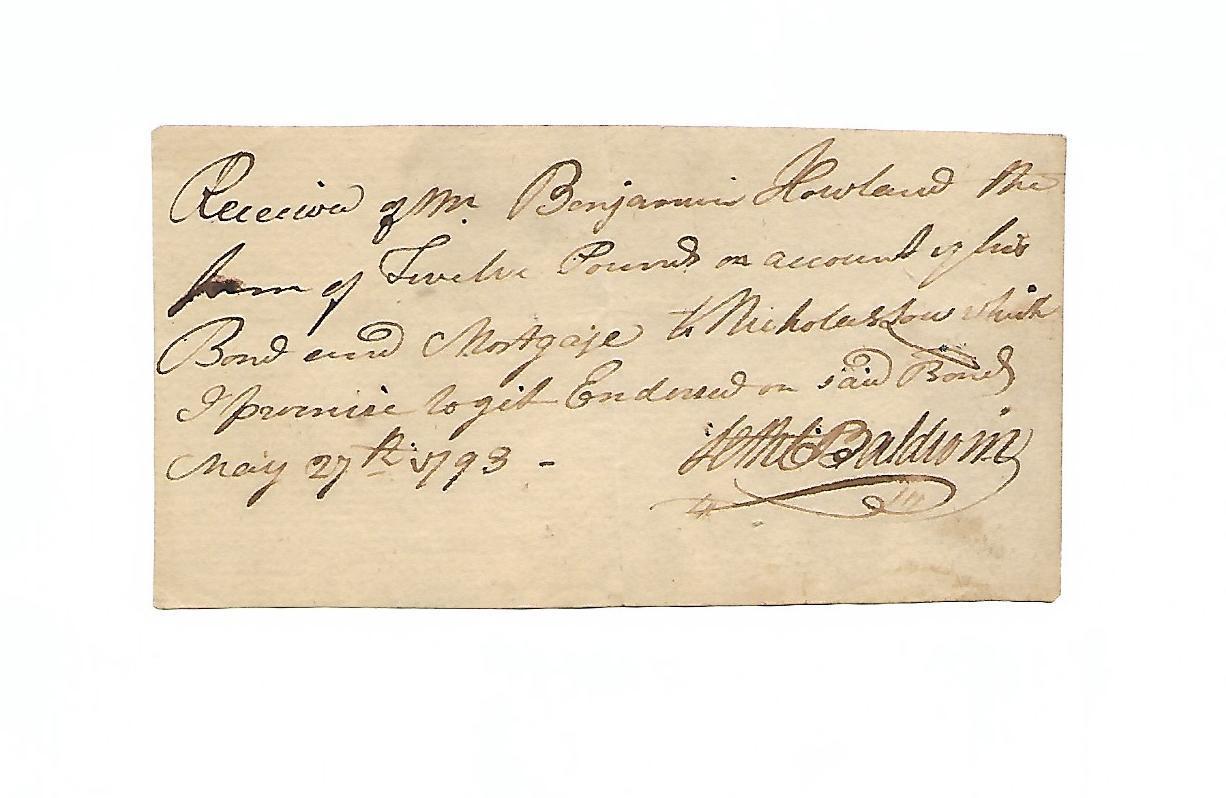 Received of Mr. Benjamin Howland the
sum of Twelve Pounds on account of his
Bond and Mortgage to Nicholas Low which
I promise to git Endorsed on said Bond
May 27th 1793 -
Seth C Baldwin